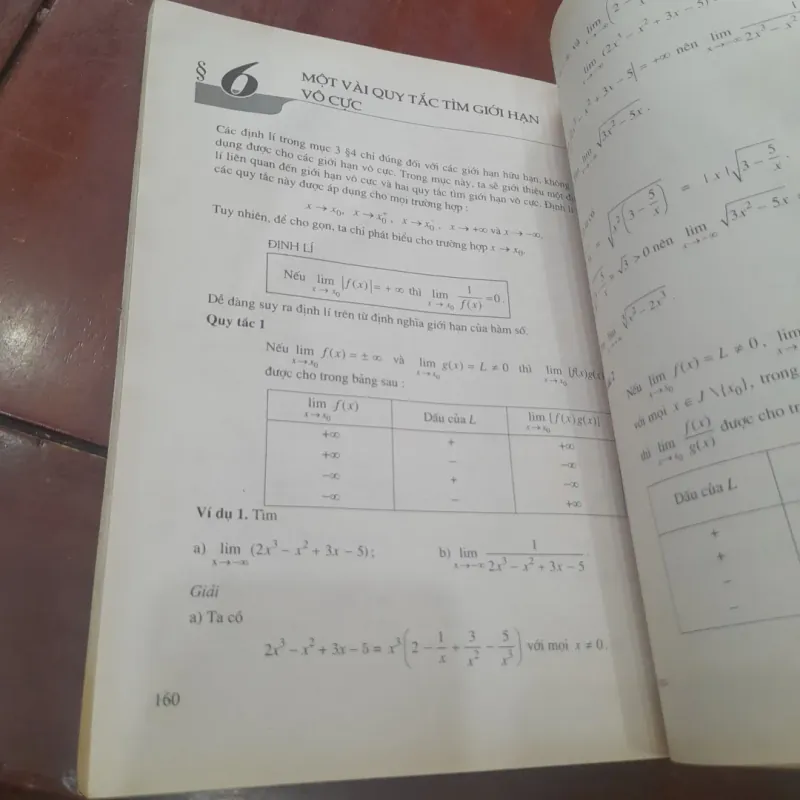 § 6 MỘT VÀI QUY TẮC TÌM GIỚI HẠN
VÔ CỰC
Các định lí trong mục 3 §4 chỉ đúng đối với các giới hạn hữu hạn, không
dụng được cho các giới hạn vô cực. Trong mục này, ta sẽ giới thiệu một
lí liên quan đến giới hạn vô cực và hai quy tắc tìm giới hạn vô cực. Định lí
các quy tắc này được áp dụng cho mọi trường hợp :
x → x₀, x → x₀⁺, x → x₀⁻, x → +∞ và x → −∞.
Tuy nhiên, để cho gọn, ta chỉ phát biểu cho trường hợp x → x₀.
ĐỊNH LÍ
Nếu lim_{x→x₀} |f(x)| = +∞ thì lim_{x→x₀} 1/f(x) = 0.
Dễ dàng suy ra định lí trên từ định nghĩa giới hạn của hàm số.
Quy tắc 1
Nếu lim_{x→x₀} f(x) = ±∞ và lim_{x→x₀} g(x) = L ≠ 0 thì lim_{x→x₀} [f(x)g(x)
được cho trong bảng sau :
lim_{x→x₀} f(x) Dấu của L lim_{x→x₀} [f(x)g(x)]
+∞ + +∞
+∞ − −∞
−∞ + −∞
−∞ − +∞
Ví dụ 1. Tìm
a) lim_{x→−∞} (2x³ − x² + 3x − 5); b) lim_{x→−∞} 1/(2x³ − x² + 3x − 5)
Giải
a) Ta có
2x³ − x² + 3x − 5 = x³(2 − 1/x + 3/x² − 5/x³) với mọi x ≠ 0.
160
(2x³ − x² + 3x − 5)
+ 3x − 5| = +∞ nên lim_{x→−∞} 1/(2x³ − x²
√(3x² − 5x).
√(x²(3 − 5/x)) = |x|√(3 − 5/x).
= √3 > 0 nên lim_{x→−∞} √(3x² − 5x
Nếu lim_{x→x₀} f(x) = L ≠ 0, lim
với mọi x ∈ J \ {x₀}, trong
thì lim_{x→x₀} f(x)/g(x) được cho tr
Dấu của L
+
+
−
−